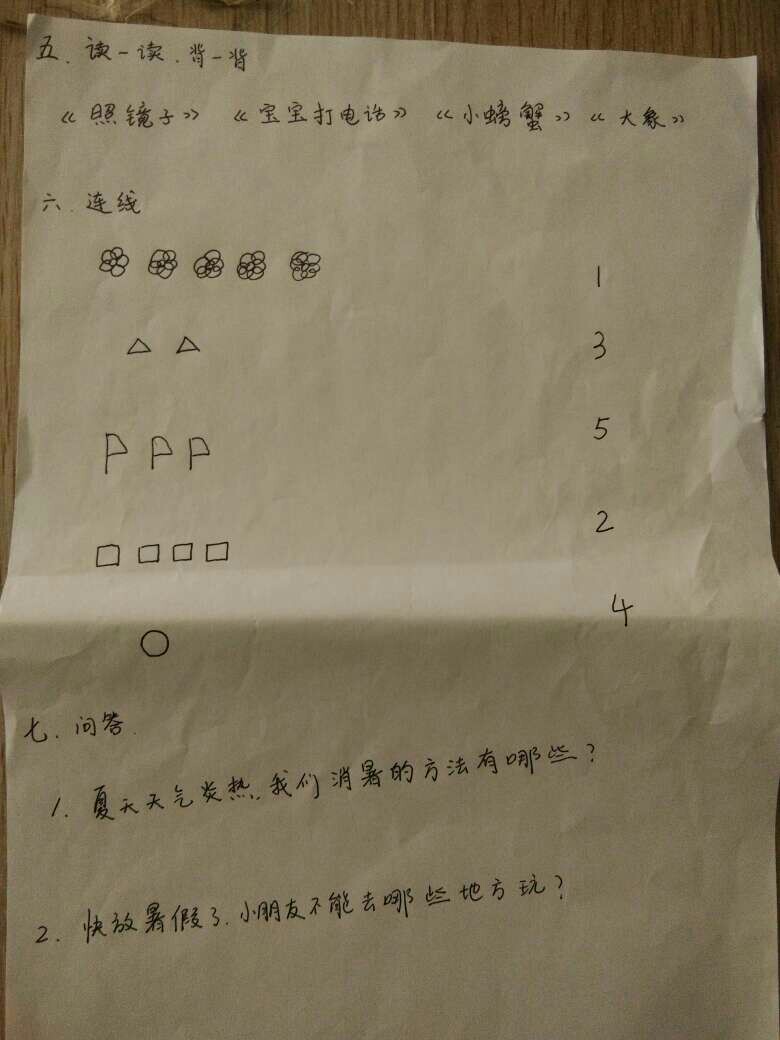 五.读一读.背一背
《照镜子》 《宝宝打电话》 《小螃蟹》《大象》
六.连线
1
3
5
2
4
七.问答.
1. 夏天天气炎热,我们消暑的方法有哪些?
2. 快放暑假了.小朋友不能去哪些地方玩?